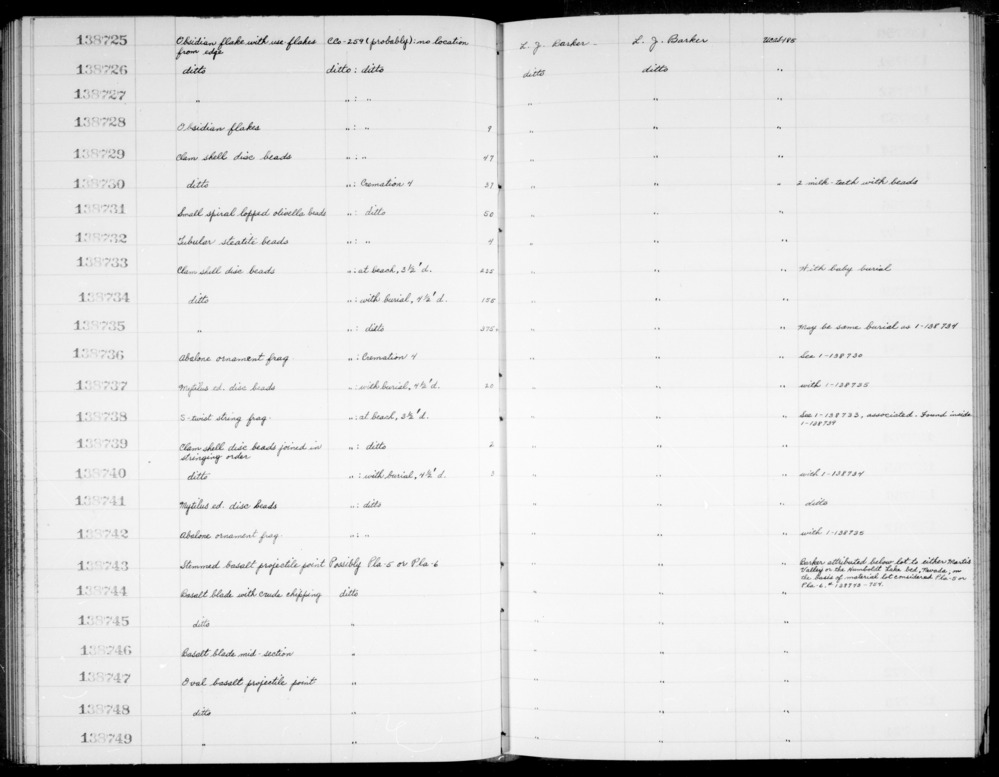 138725 Obsidian flake with use flakes from edge CCo-259 (probably): no location L. J. Barker L. J. Barker
138726 ditto ditto: ditto ditto ditto "
138727 " ": " " " "
138728 Obsidian flakes ": " 9 " " "
138729 Clam shell disc beads ": " 47 " " "
138730 ditto ": Cremation 4 37 " " " 2 milk teeth with beads
138731 Small spiral lopped olivella beads ": ditto 50 " " "
138732 Tubular steatite beads ": " 4 " " "
138733 Clam shell disc beads ": at beach, 3½' d. 235 " " " With baby burial
138734 ditto ": with burial, 4½' d. 155 " " "
138735 " ": ditto 375 " " " May be same burial as 1-138734
138736 Abalone ornament frag. ": Cremation 4 " " " See 1-138730
138737 Mytilus ed. disc beads ": with burial, 4½' d. " " " with 1-138735
138738 S-twist string frag. ": at beach, 3½' d. " " " See 1-138733, associated. Found inside 1-138739
138739 Clam shell disc beads joined in stringing order ": ditto 2 " " "
138740 ditto ": with burial, 4½' d. " " " with 1-138734
138741 Mytilus ed. disc beads ": ditto " " " ditto
138742 Abalone ornament frag. ": " " " " with 1-138735
138743 Stemmed basalt projectile point Possibly Pla-5 or Pla-6 " " " Barker attributed below lot to either Martis Valley or the Humboldt Lake bed, Nevada, on the basis of material lot considered Pla-5 or Pla-6. # 138743-754.
138744 Basalt blade with crude chipping ditto " " "
138745 ditto " " " "
138746 Basalt blade mid-section " " " "
138747 Oval basalt projectile point " " " "
138748 ditto " " " "
138749 " " " " "